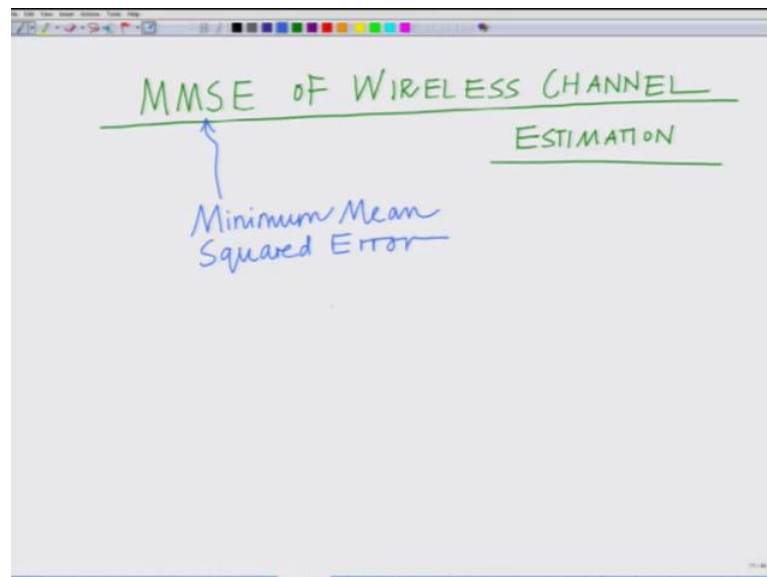 MMSE OF WIRELESS CHANNEL
ESTIMATION
Minimum Mean
Squared Error